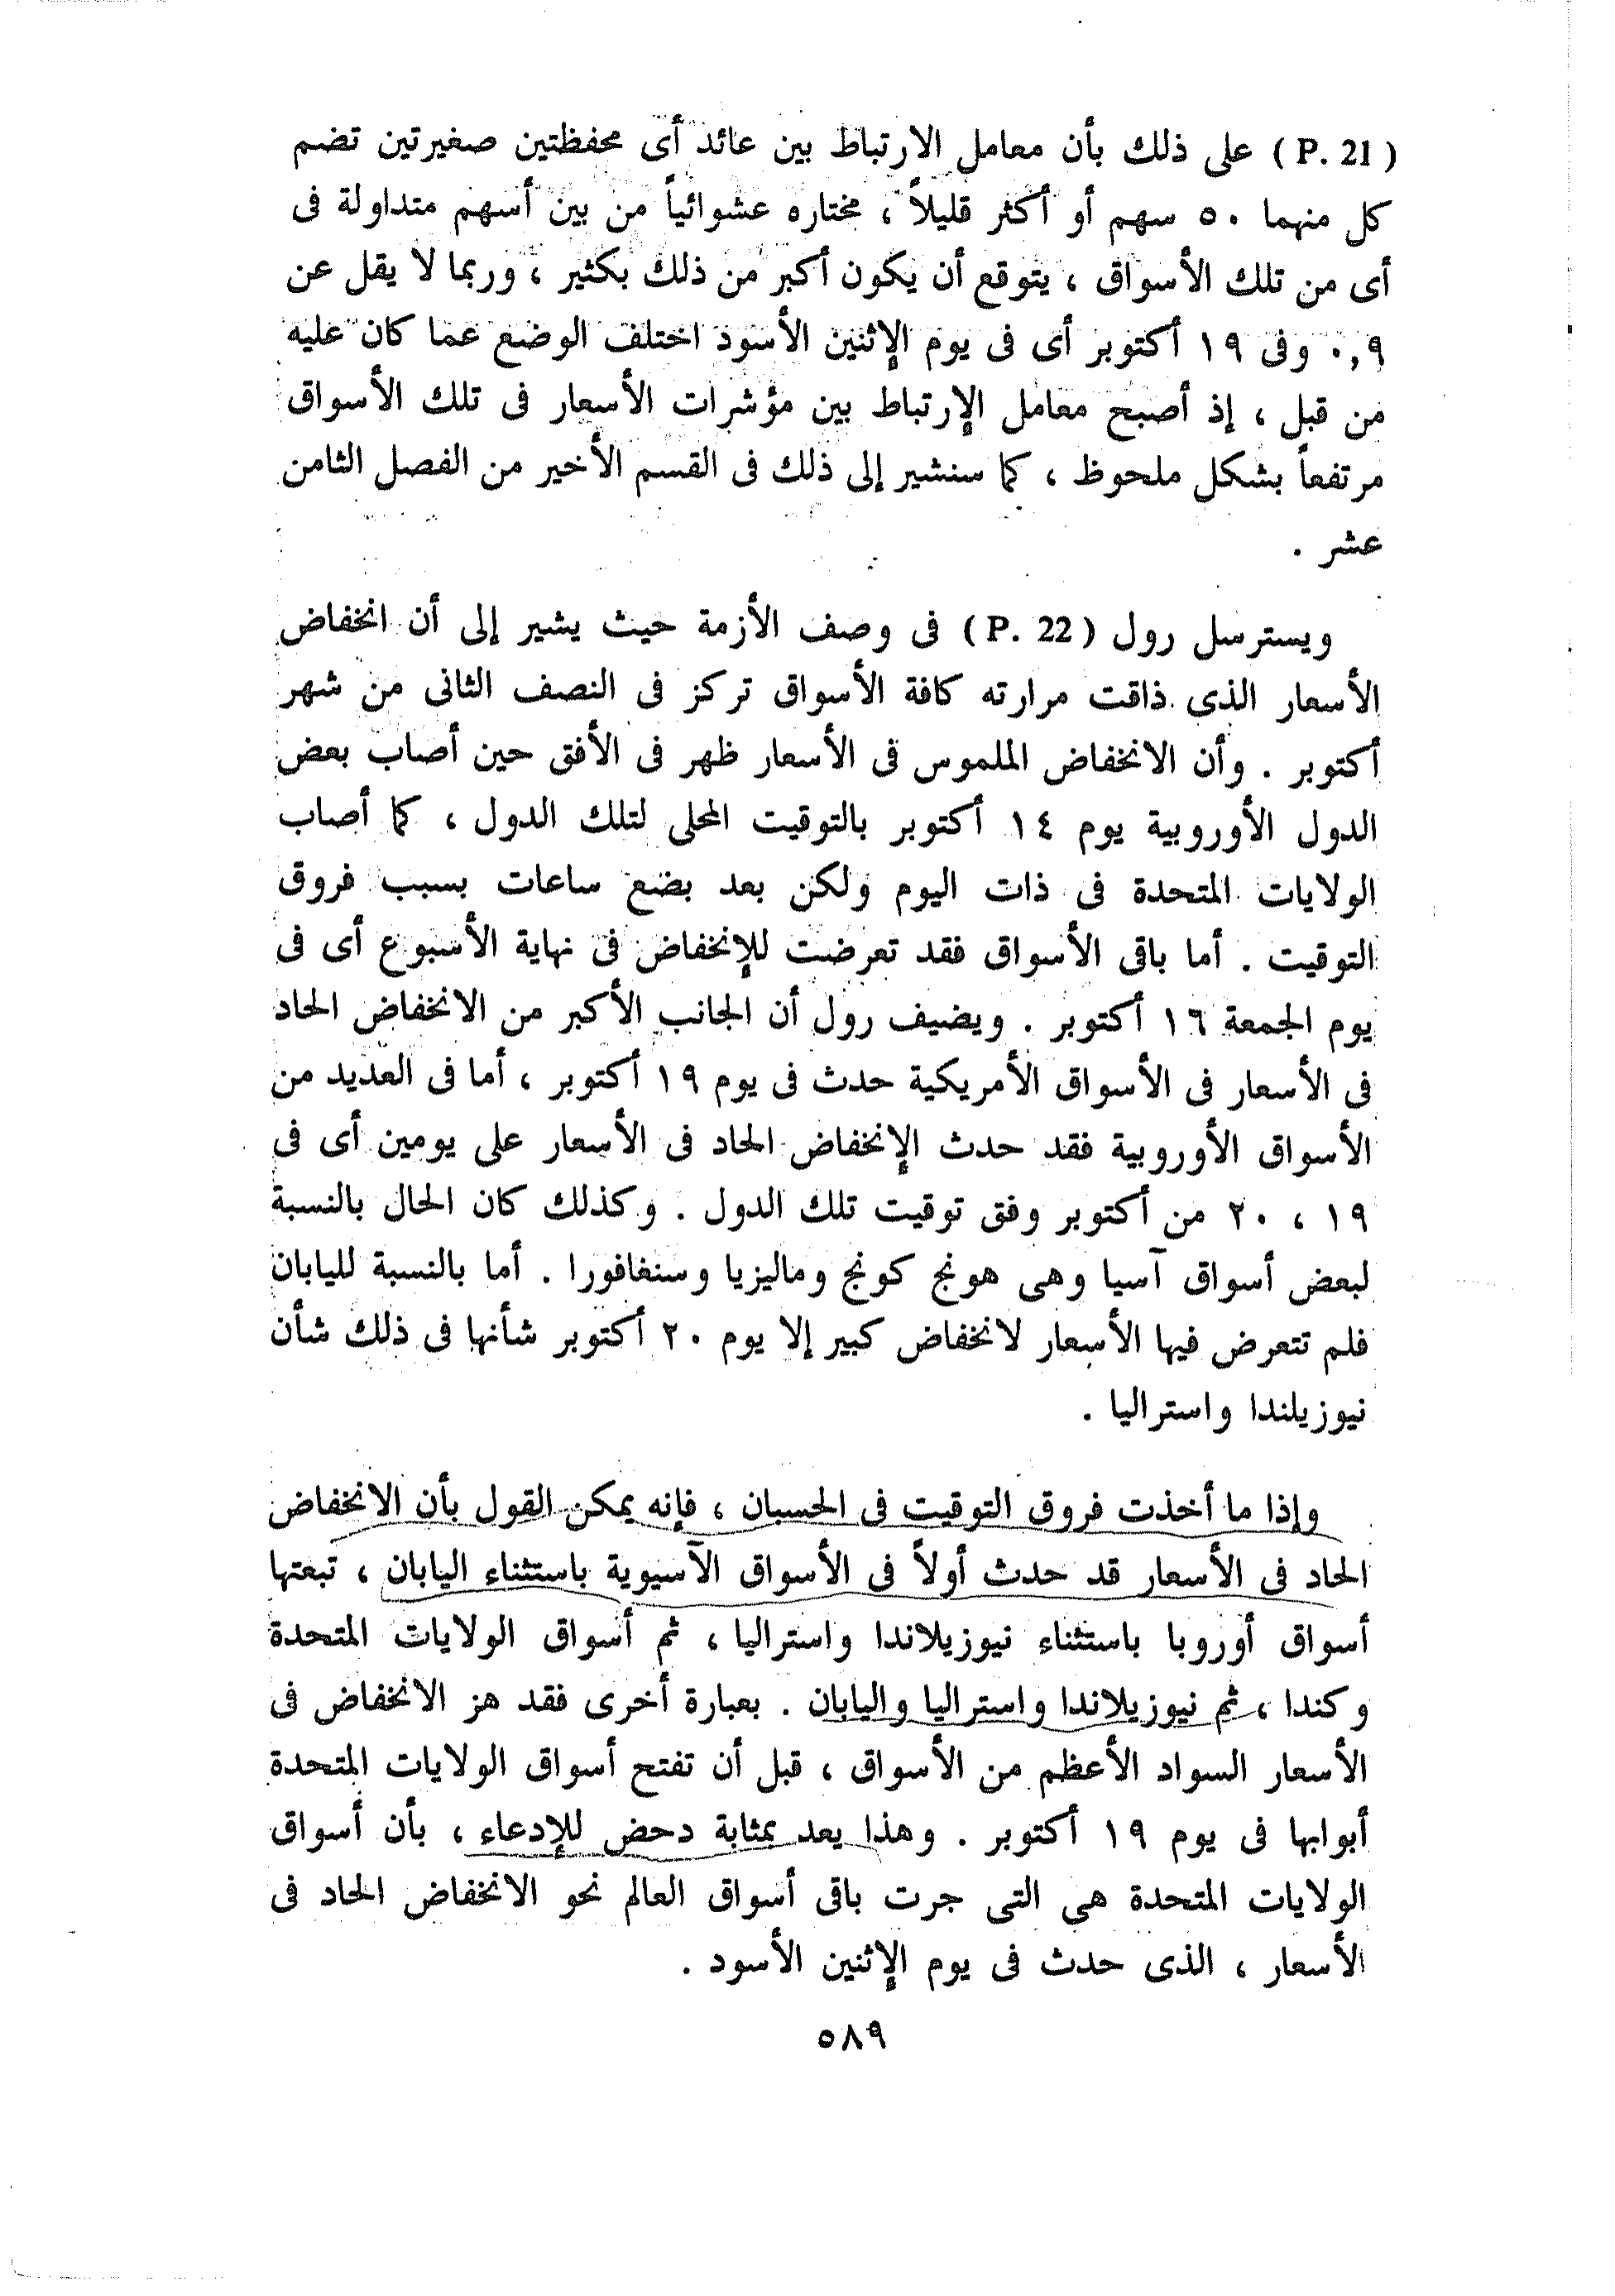 ( P. 21 ) على ذلك بأن معامل الارتباط بين عائد أى محفظتين صغيرتين تضم
كل منهما ٥٠ سهم أو أكثر قليلاً ، مختاره عشوائياً من بين أسهم متداولة فى
أى من تلك الأسواق ، يتوقع أن يكون أكبر من ذلك بكثير ، وربما لا يقل عن
٠,٩ وفى ١٩ أكتوبر أى فى يوم الإثنين الأسود اختلف الوضع عما كان عليه
من قبل ، إذ أصبح معامل الإرتباط بين مؤشرات الأسعار فى تلك الأسواق
مرتفعاً بشكل ملحوظ ، كما سنشير إلى ذلك فى القسم الأخير من الفصل الثامن
عشر .
ويسترسل رول ( P. 22 ) فى وصف الأزمة حيث يشير إلى أن انخفاض
الأسعار الذى ذاقت مرارته كافة الأسواق تركز فى النصف الثانى من شهر
أكتوبر . وأن الانخفاض الملموس فى الأسعار ظهر فى الأفق حين أصاب بعض
الدول الأوروبية يوم ١٤ أكتوبر بالتوقيت المحلى لتلك الدول ، كما أصاب
الولايات المتحدة فى ذات اليوم ولكن بعد بضع ساعات بسبب فروق
التوقيت . أما باقى الأسواق فقد تعرضت للإنخفاض فى نهاية الأسبوع أى فى
يوم الجمعة ١٦ أكتوبر . ويضيف رول أن الجانب الأكبر من الانخفاض الحاد
فى الأسعار فى الأسواق الأمريكية حدث فى يوم ١٩ أكتوبر ، أما فى العديد من
الأسواق الأوروبية فقد حدث الإنخفاض الحاد فى الأسعار على يومين أى فى
١٩ ، ٢٠ من أكتوبر وفق توقيت تلك الدول . وكذلك كان الحال بالنسبة
لبعض أسواق آسيا وهى هونج كونج وماليزيا وسنغافورا . أما بالنسبة لليابان
فلم تتعرض فيها الأسعار لانخفاض كبير إلا يوم ٢٠ أكتوبر شأنها فى ذلك شأن
نيوزيلندا واستراليا .
وإذا ما أخذت فروق التوقيت فى الحسبان ، فإنه يمكن القول بأن الانخفاض
الحاد فى الأسعار قد حدث أولاً فى الأسواق الآسيوية باستثناء اليابان ، تبعتها
أسواق أوروبا باستثناء نيوزيلاندا واستراليا ، ثم أسواق الولايات المتحدة
وكندا ، ثم نيوزيلاندا واستراليا واليابان . بعبارة أخرى فقد هز الانخفاض فى
الأسعار السواد الأعظم من الأسواق ، قبل أن تفتح أسواق الولايات المتحدة
أبوابها فى يوم ١٩ أكتوبر . وهذا يعد بمثابة دحض للإدعاء ، بأن أسواق
الولايات المتحدة هى التى جرت باقى أسواق العالم نحو الانخفاض الحاد فى
الأسعار ، الذى حدث فى يوم الإثنين الأسود .
٥٨٩